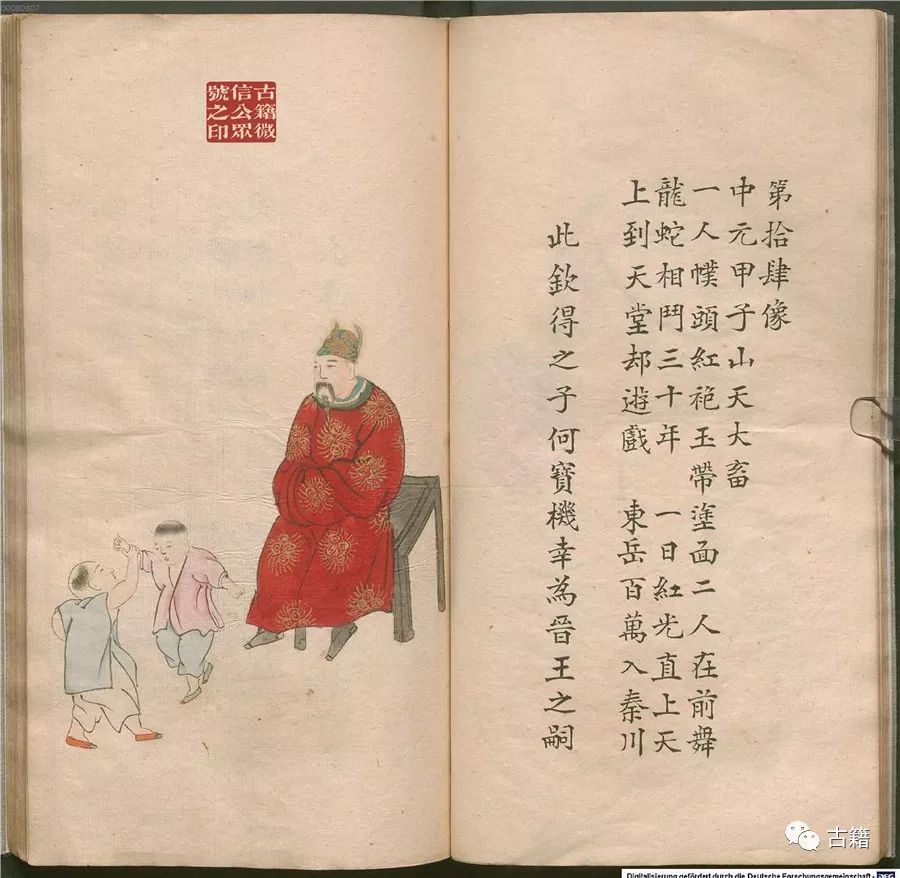 第拾肆像
中元甲子山天大畜
一人幞頭紅袍玉帶塗面二人在前舞
龍蛇相鬥三十年 一日紅光直上天
上到天堂却遊戲 東岳百萬入秦川
此欽得之子何寶機幸為晉王之嗣
古籍微
信公眾
號之印
00080607
古籍
Digitalisierung gefördert durch die Deutsche Forschungsgemeinschaft - DFG